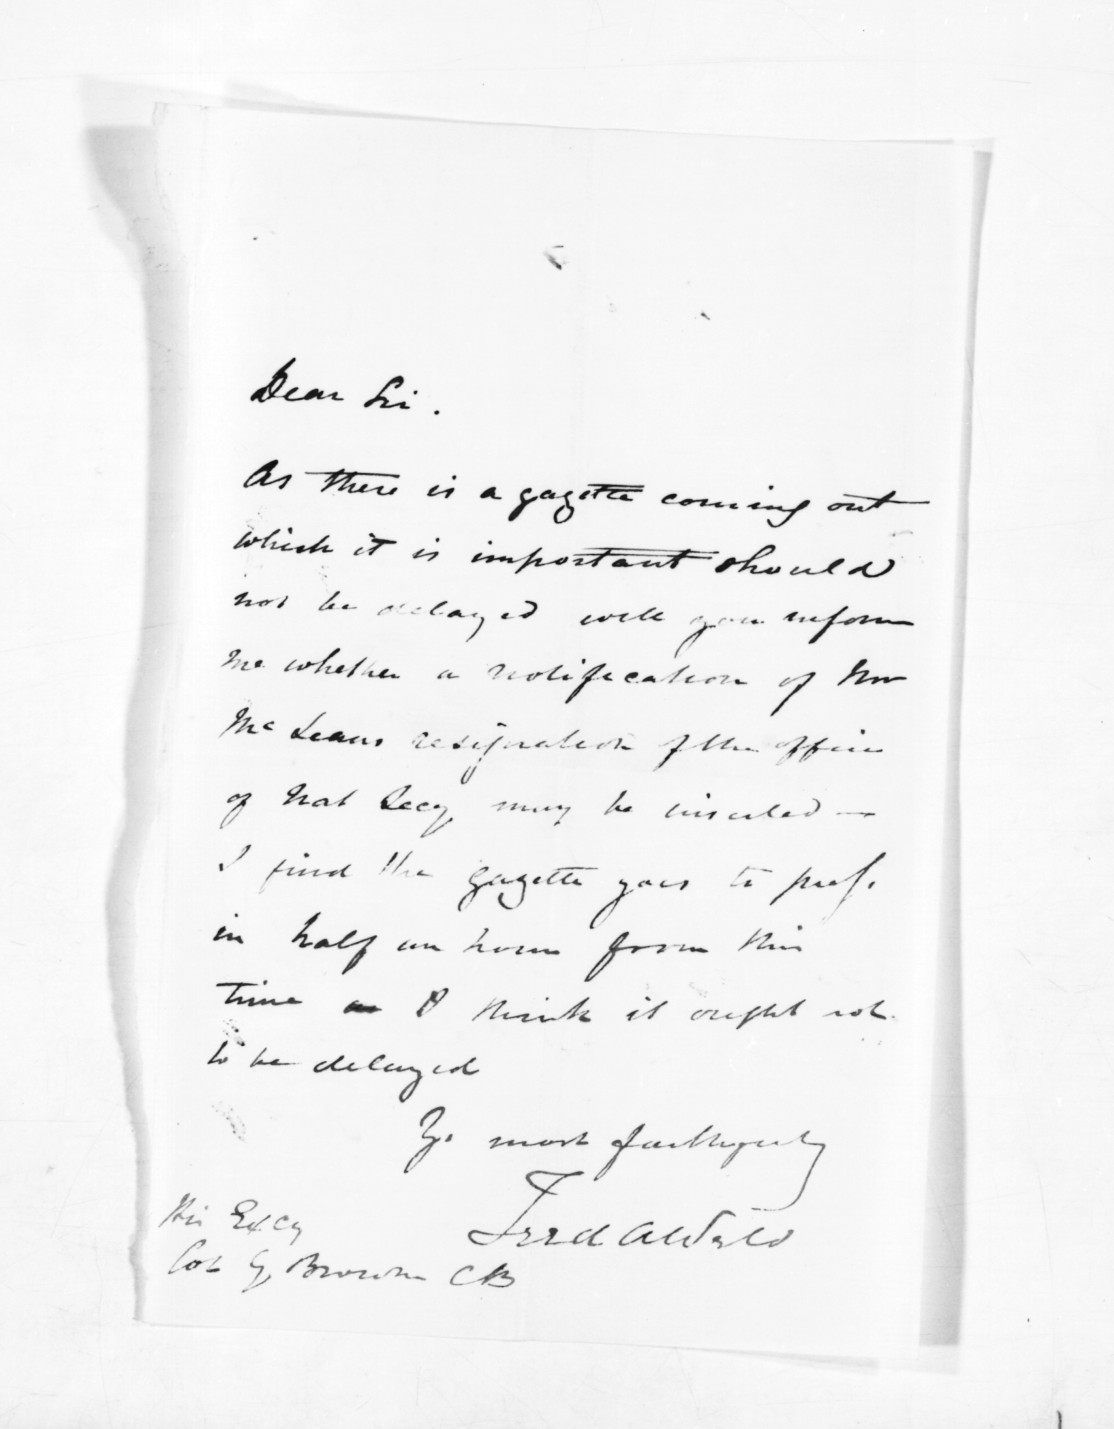 Dear Sir.
As there is a gazette coming out
which it is important should
not be delayed will you inform
me whether a notification of Mr
McLeans resignation of the office
of Nat Secy may be inserted —
I find the gazette goes to press
in half an hour from this
time I think it ought not
to be delayed
Yrs most faithfully
Fred A Weld
His Excy
Col G Browne CB